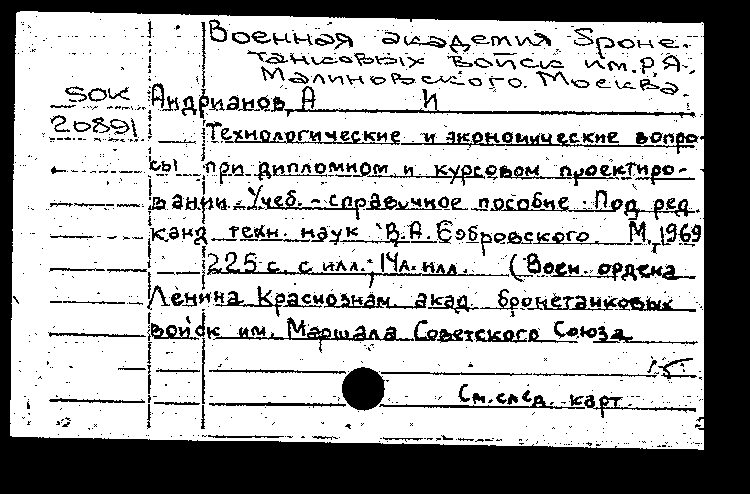 Военная академия Броне-
танковых войск им. Р.Я.
Малиновского. Москва.
SOK Андрианов, А И
20891 Технологические и экономические вопро-
сы при дипломном и курсовом проектиро-
вании. Учеб.-справочное пособие. Под ред.
канд техн. наук В.А. Бобровского. М, 1969
225 с. с илл.; 14л. илл. (Воен. ордена
Ленина Краснознам. акад. бронетанковых
войск им. Маршала Советского Союза
См. след. карт.